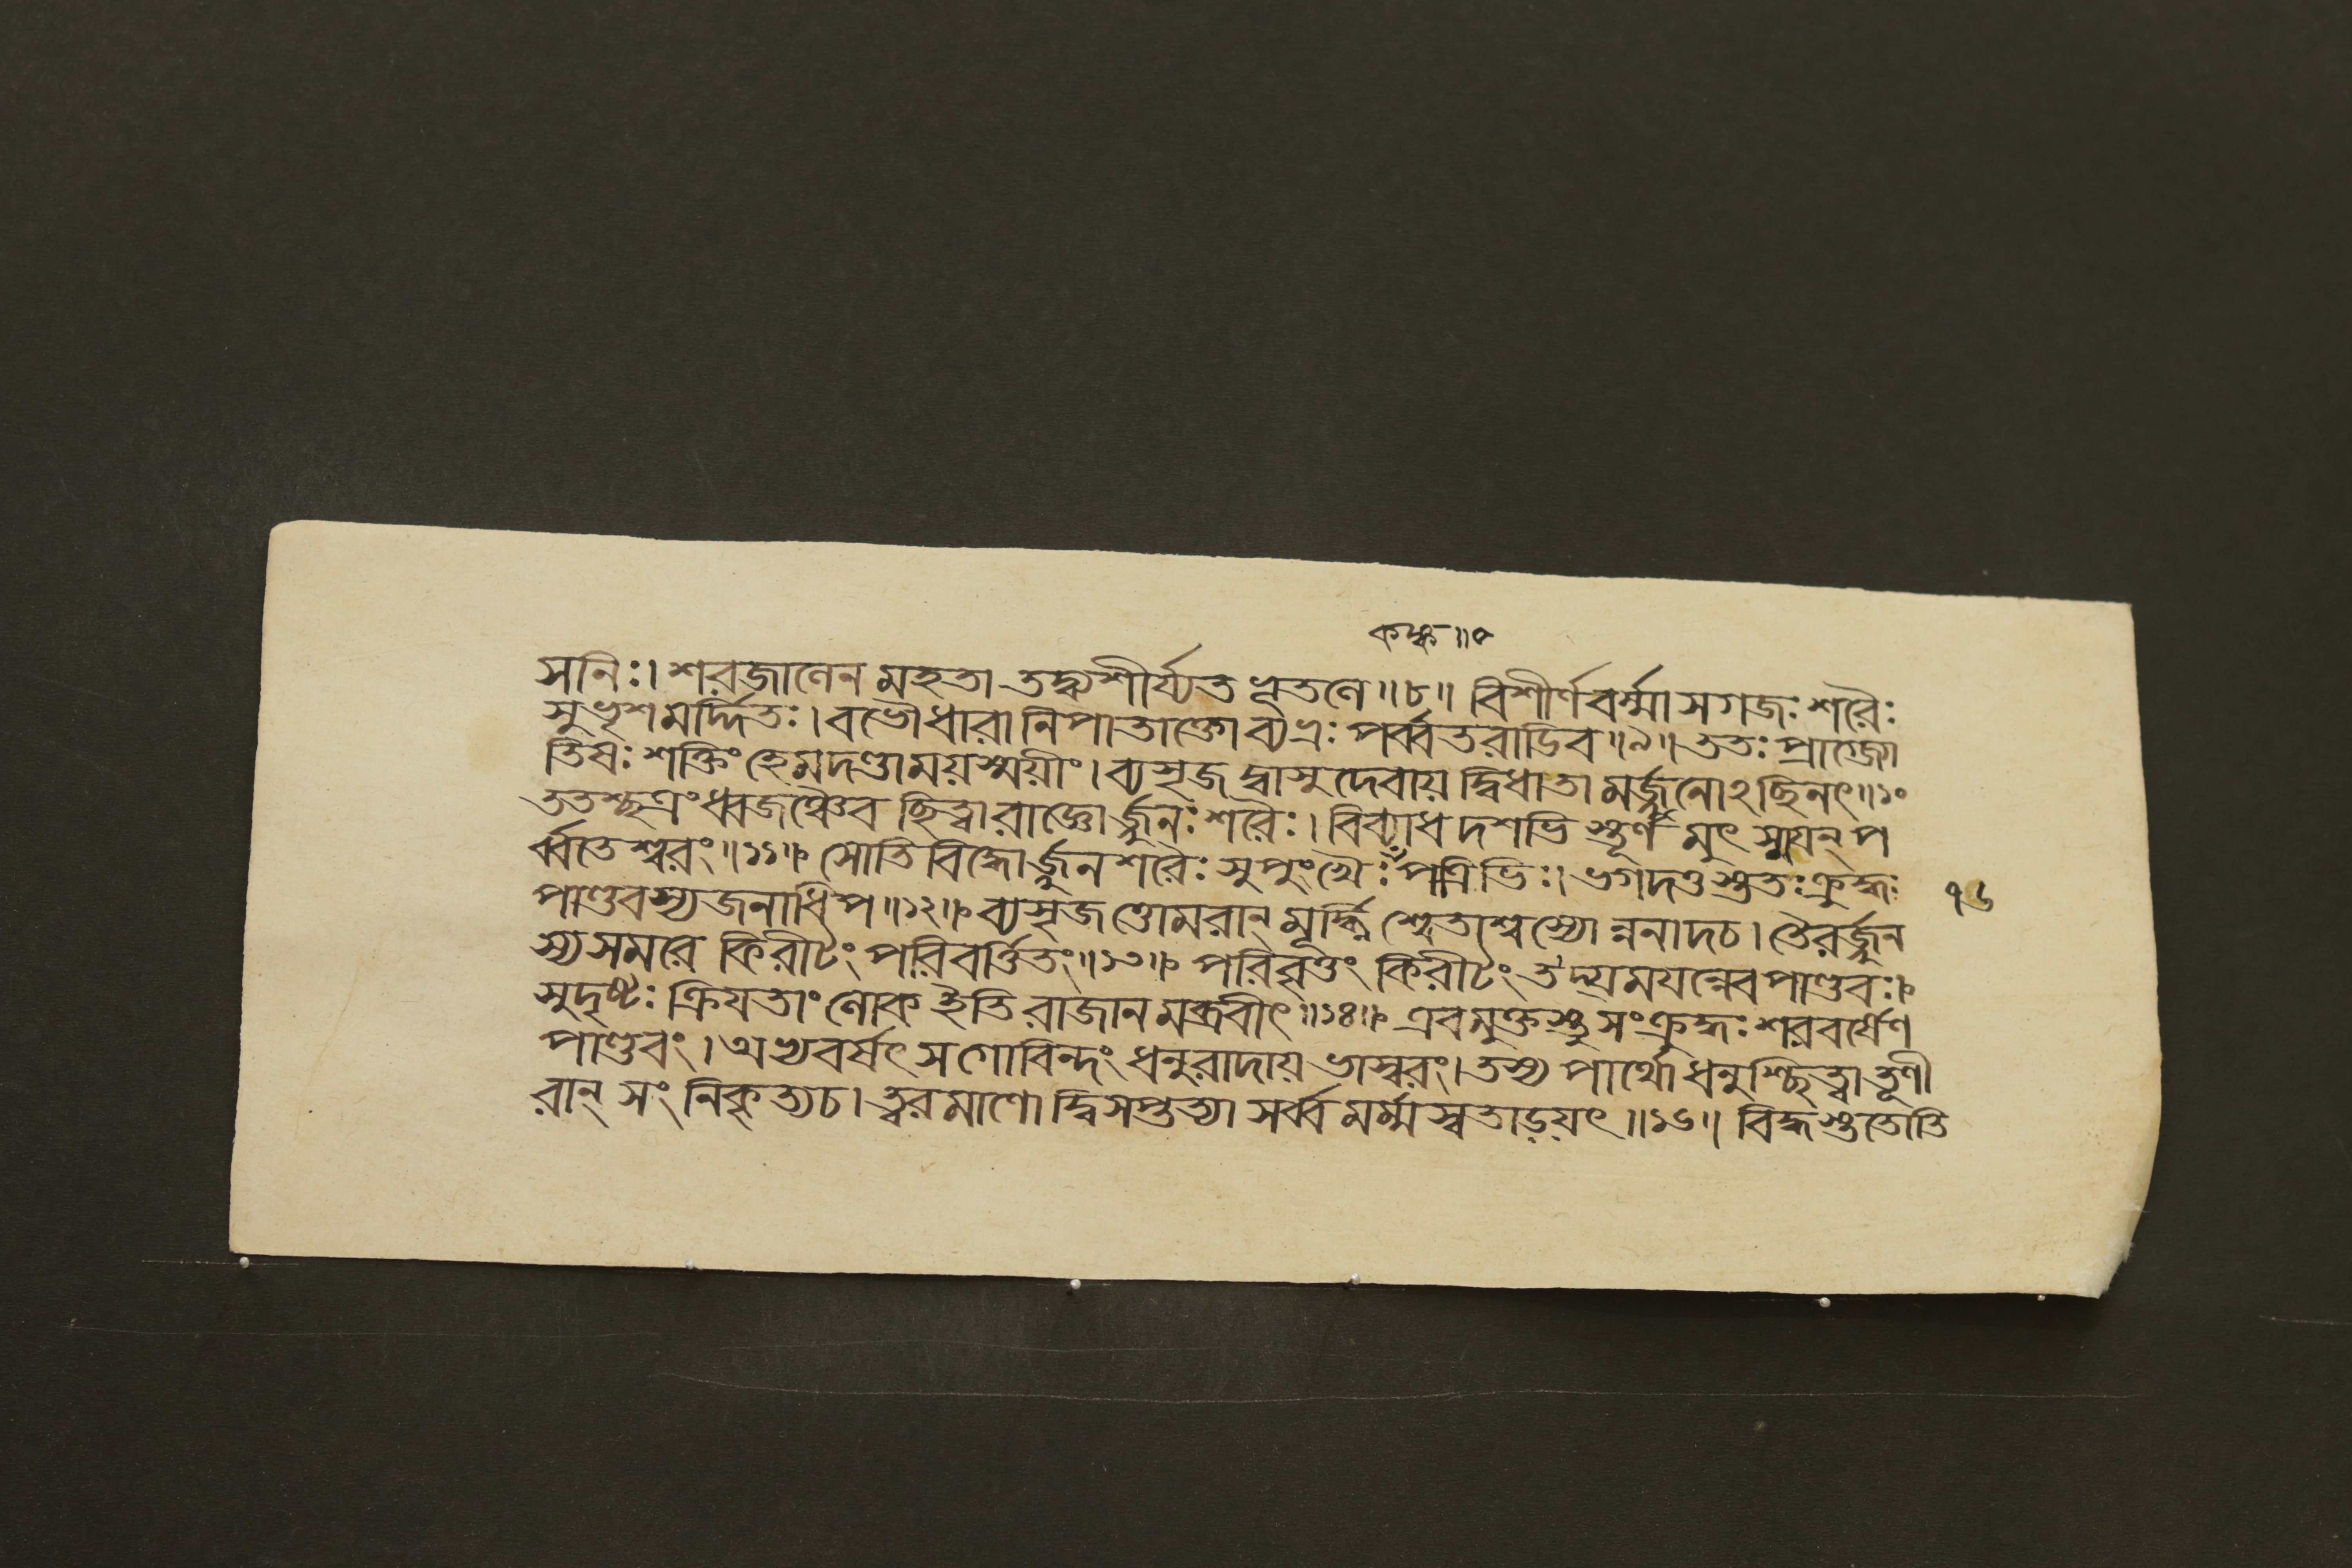 কঙ্ক॥৭
সনিঃ। শরজালেন মহতা তদ্ব্যশীর্য্যত ভূতলে॥৮॥ বিশীর্ণবর্ম্মা সগজঃ শরৈঃ
সুভৃশমর্দ্দিতঃ। বভৌ ধারানিপাতাক্তো ব্যভ্রঃ পর্ব্বতরাডিব॥৯॥ ততঃ প্রাগ্জ্যো
তিষঃ শক্তিং হেমদণ্ডাময়স্ময়ীং। ব্যসৃজদ্বাসুদেবায় দ্বিধা তামর্জ্জুনোঽছিনৎ॥১০
ততশ্ছত্রং ধ্বজঞ্চৈব ছিত্বা রাজ্ঞোর্জ্জুনঃ শরৈঃ। বিব্যাধ দশভিস্তূর্ণমুৎস্ময়ন্ প
র্ব্বতেশ্বরং॥১১॥ সোতিবিদ্ধোর্জ্জুনশরৈঃ সুপুংখৈঃ পত্রিভিঃ। ভগদত্তস্ততঃ ক্রুদ্ধঃ
পাণ্ডবস্য জনাধিপ॥১২॥ ব্যসৃজত্তোমরান্ মূর্দ্ধ্নি শ্বেতাশ্বস্যোন্ননাদ চ। তৈরর্জ্জুন
স্য সমরে কিরীটং পরিবর্ত্তিতং॥১৩॥ পরিবৃত্তং কিরীটং তদ্যময়ন্নেব পাণ্ডবঃ।
সুদৃষ্টঃ ক্রিয়তাং লোক ইতি রাজানমব্রবীৎ॥১৪॥ এবমুক্তস্তু সংক্রুদ্ধঃ শরবর্ষেণ
পাণ্ডবং। অভ্যবর্ষৎ সগোবিন্দং ধনুরাদায় ভাস্বরং। তস্য পার্থো ধনুশ্ছিত্বা তূণী
রান্ সংনিকৃত্য চ। ত্বরমাণো দ্বিসপ্তত্যা সর্ব্বমর্ম্মস্বতাড়য়ৎ॥১৬॥ বিদ্ধস্ততোতি
৭৬